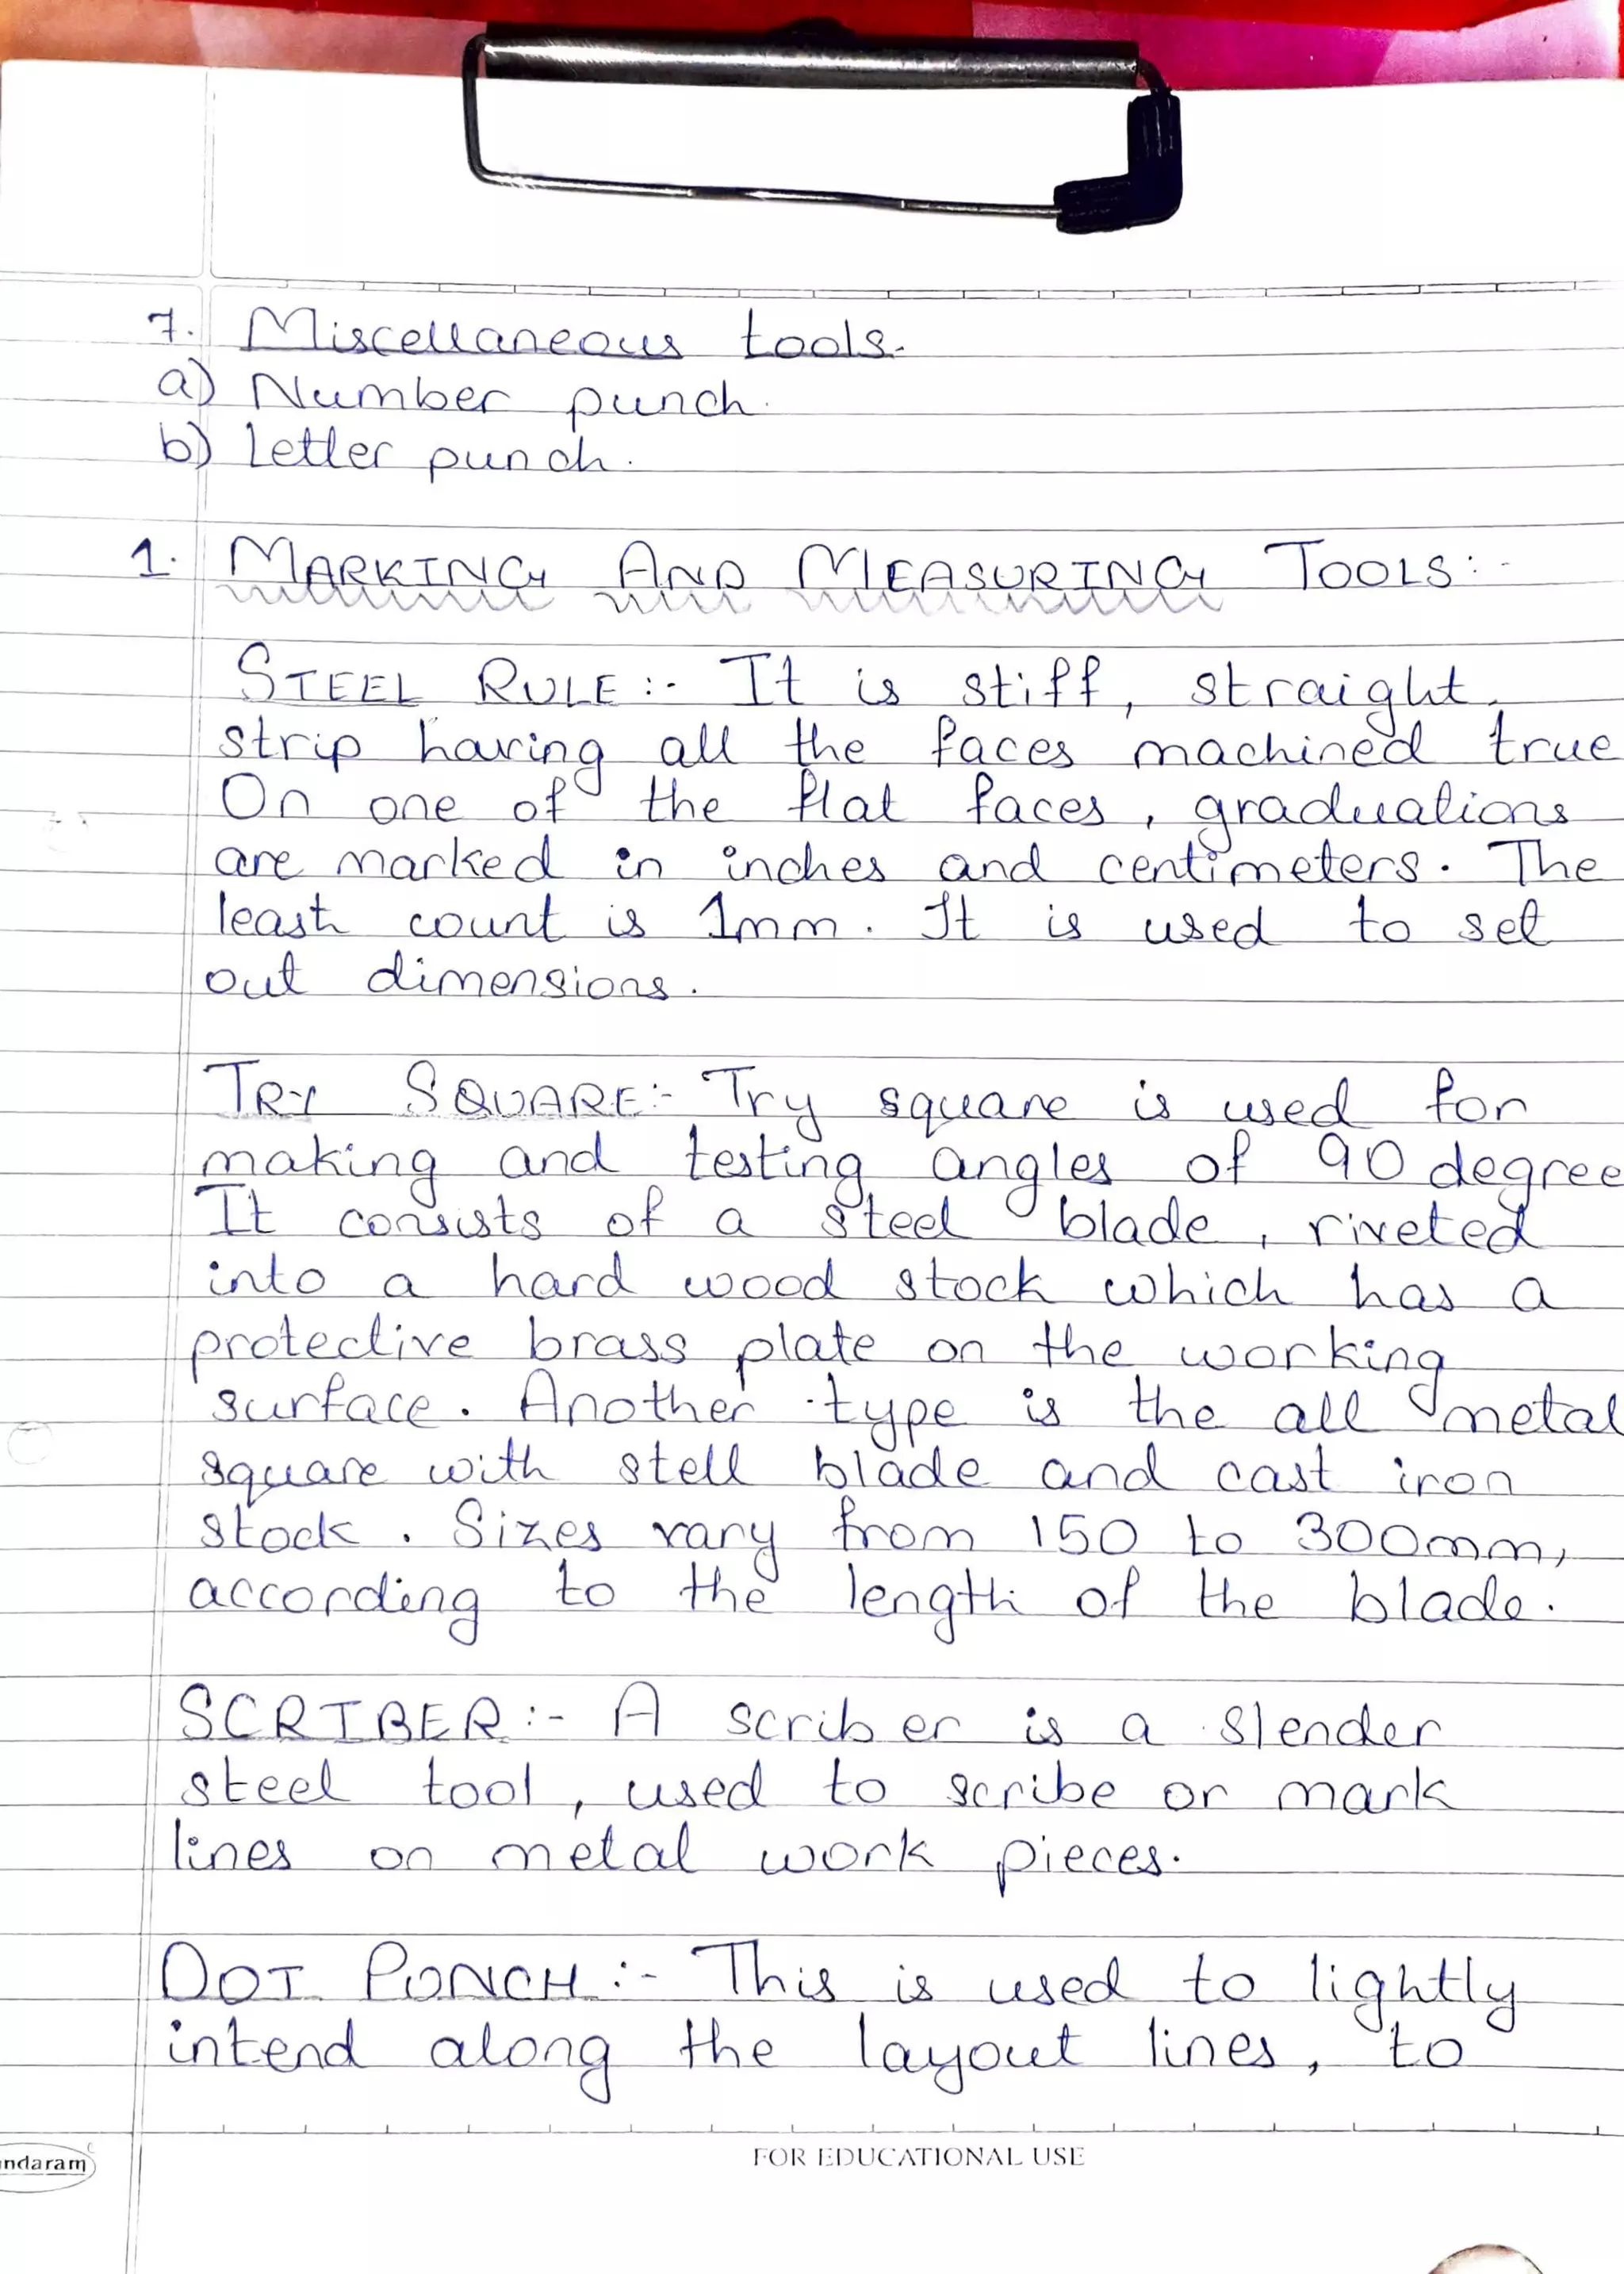 7. Miscellaneous tools.
a) Number punch.
b) Letter punch.
1. MARKING AND MEASURING TOOLS:-
STEEL RULE:- It is stiff, straight,
strip having all the faces machined true
On one of the flat faces, graduations
are marked in inches and centimeters. The
least count is 1mm. It is used to set
out dimensions.
TRY SQUARE:- Try square is used for
making and testing angles of 90 degree
It consists of a steel blade, riveted
into a hard wood stock which has a
protective brass plate on the working
surface. Another type is the all metal
square with stell blade and cast iron
stock. Sizes vary from 150 to 300mm,
according to the length of the blade.
SCRIBER:- A scriber is a slender
steel tool, used to scribe or mark
lines on metal work pieces.
DOT PUNCH:- This is used to lightly
intend along the layout lines, to
ndaram
FOR EDUCATIONAL USE